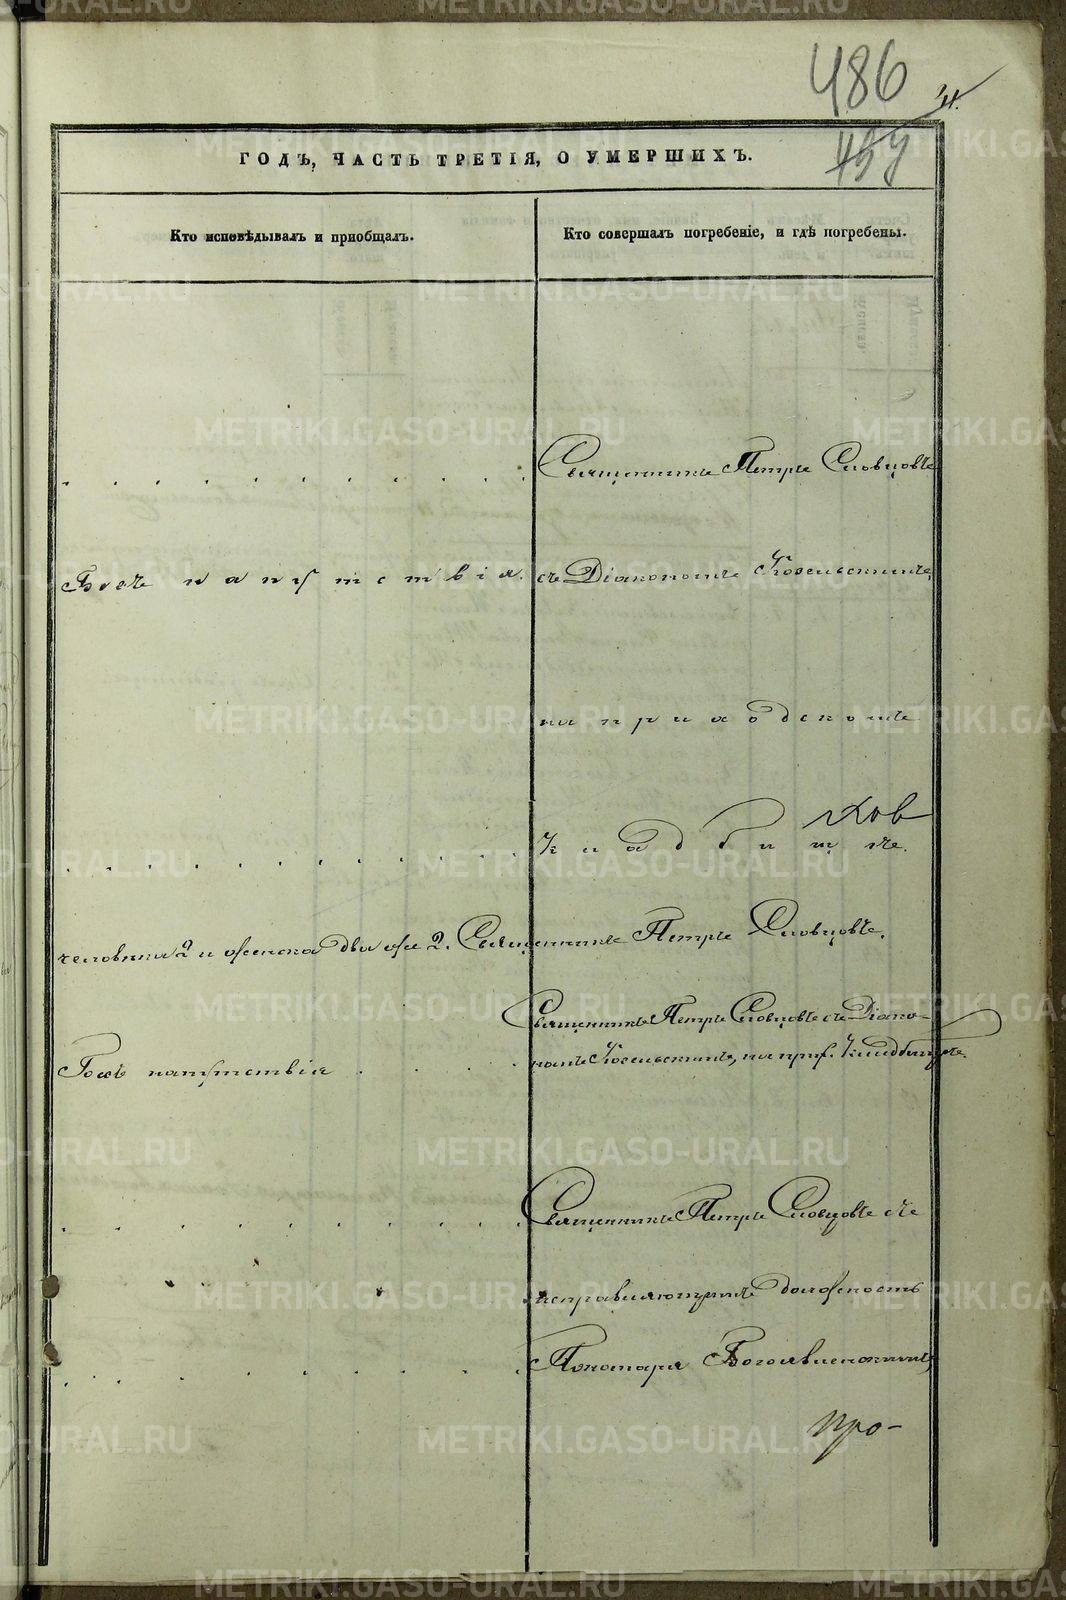 486
11.
ГОДЪ, ЧАСТЬ ТРЕТІЯ, О УМЕРШИХЪ.
Кто исповѣдывалъ и пріобщалъ.
Кто совершалъ погребеніе, и гдѣ погребены.
Священникъ Петръ Словцовъ
Безъ напутствія. съ Діакономъ Козельскимъ,
на приходскомъ
ков
кладбищѣ.
человѣка 2 и женска два же 2. Священникъ Петръ Словцовъ.
Священникъ Петръ Словцовъ съ Діако-
Безъ напутствія
номъ Козельскимъ, на прих. кладбищѣ.
Священникъ Петръ Словцовъ съ
исправляющимъ должность
Пономаря Богоявленскимъ,
про-
METRIKI.GASO-URAL.RU